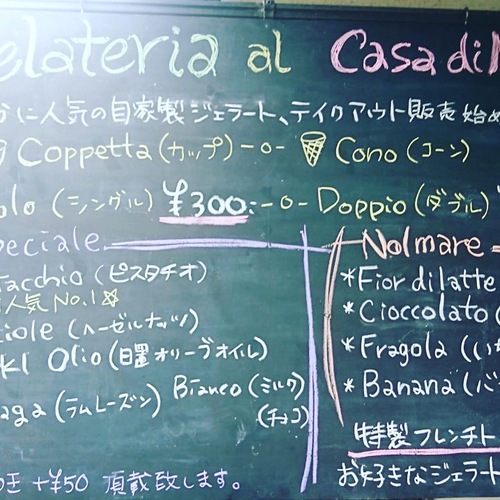 elateria al Casa di
かに人気の自家製ジェラート、テイクアウト販売 始め
Coppetta (カップ) -o- Cono (コーン)
olo (シングル) ¥300.- -o- Doppio (ダブル)
peciale
acchio (ピスタチオ)
人気 No.1☆
ciole (ヘーゼルナッツ)
kl Olio (日置オリーブオイル)
aga (ラムレーズン) Bianco (ミルク)
(チョコ)
+¥50 頂戴致します。
Nolmare
*Fior di latte
*Cioccolato (
*Fragola (い
*Banana (バ
特製フレンチト
お好きなジェラート